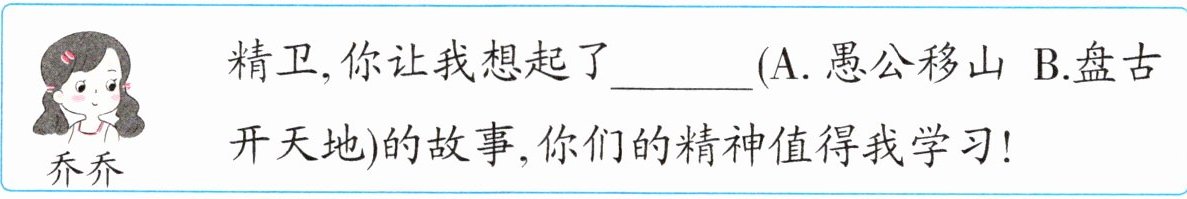 精卫,你让我想起了______(A. 愚公移山 B.盘古
开天地)的故事,你们的精神值得我学习!
乔乔